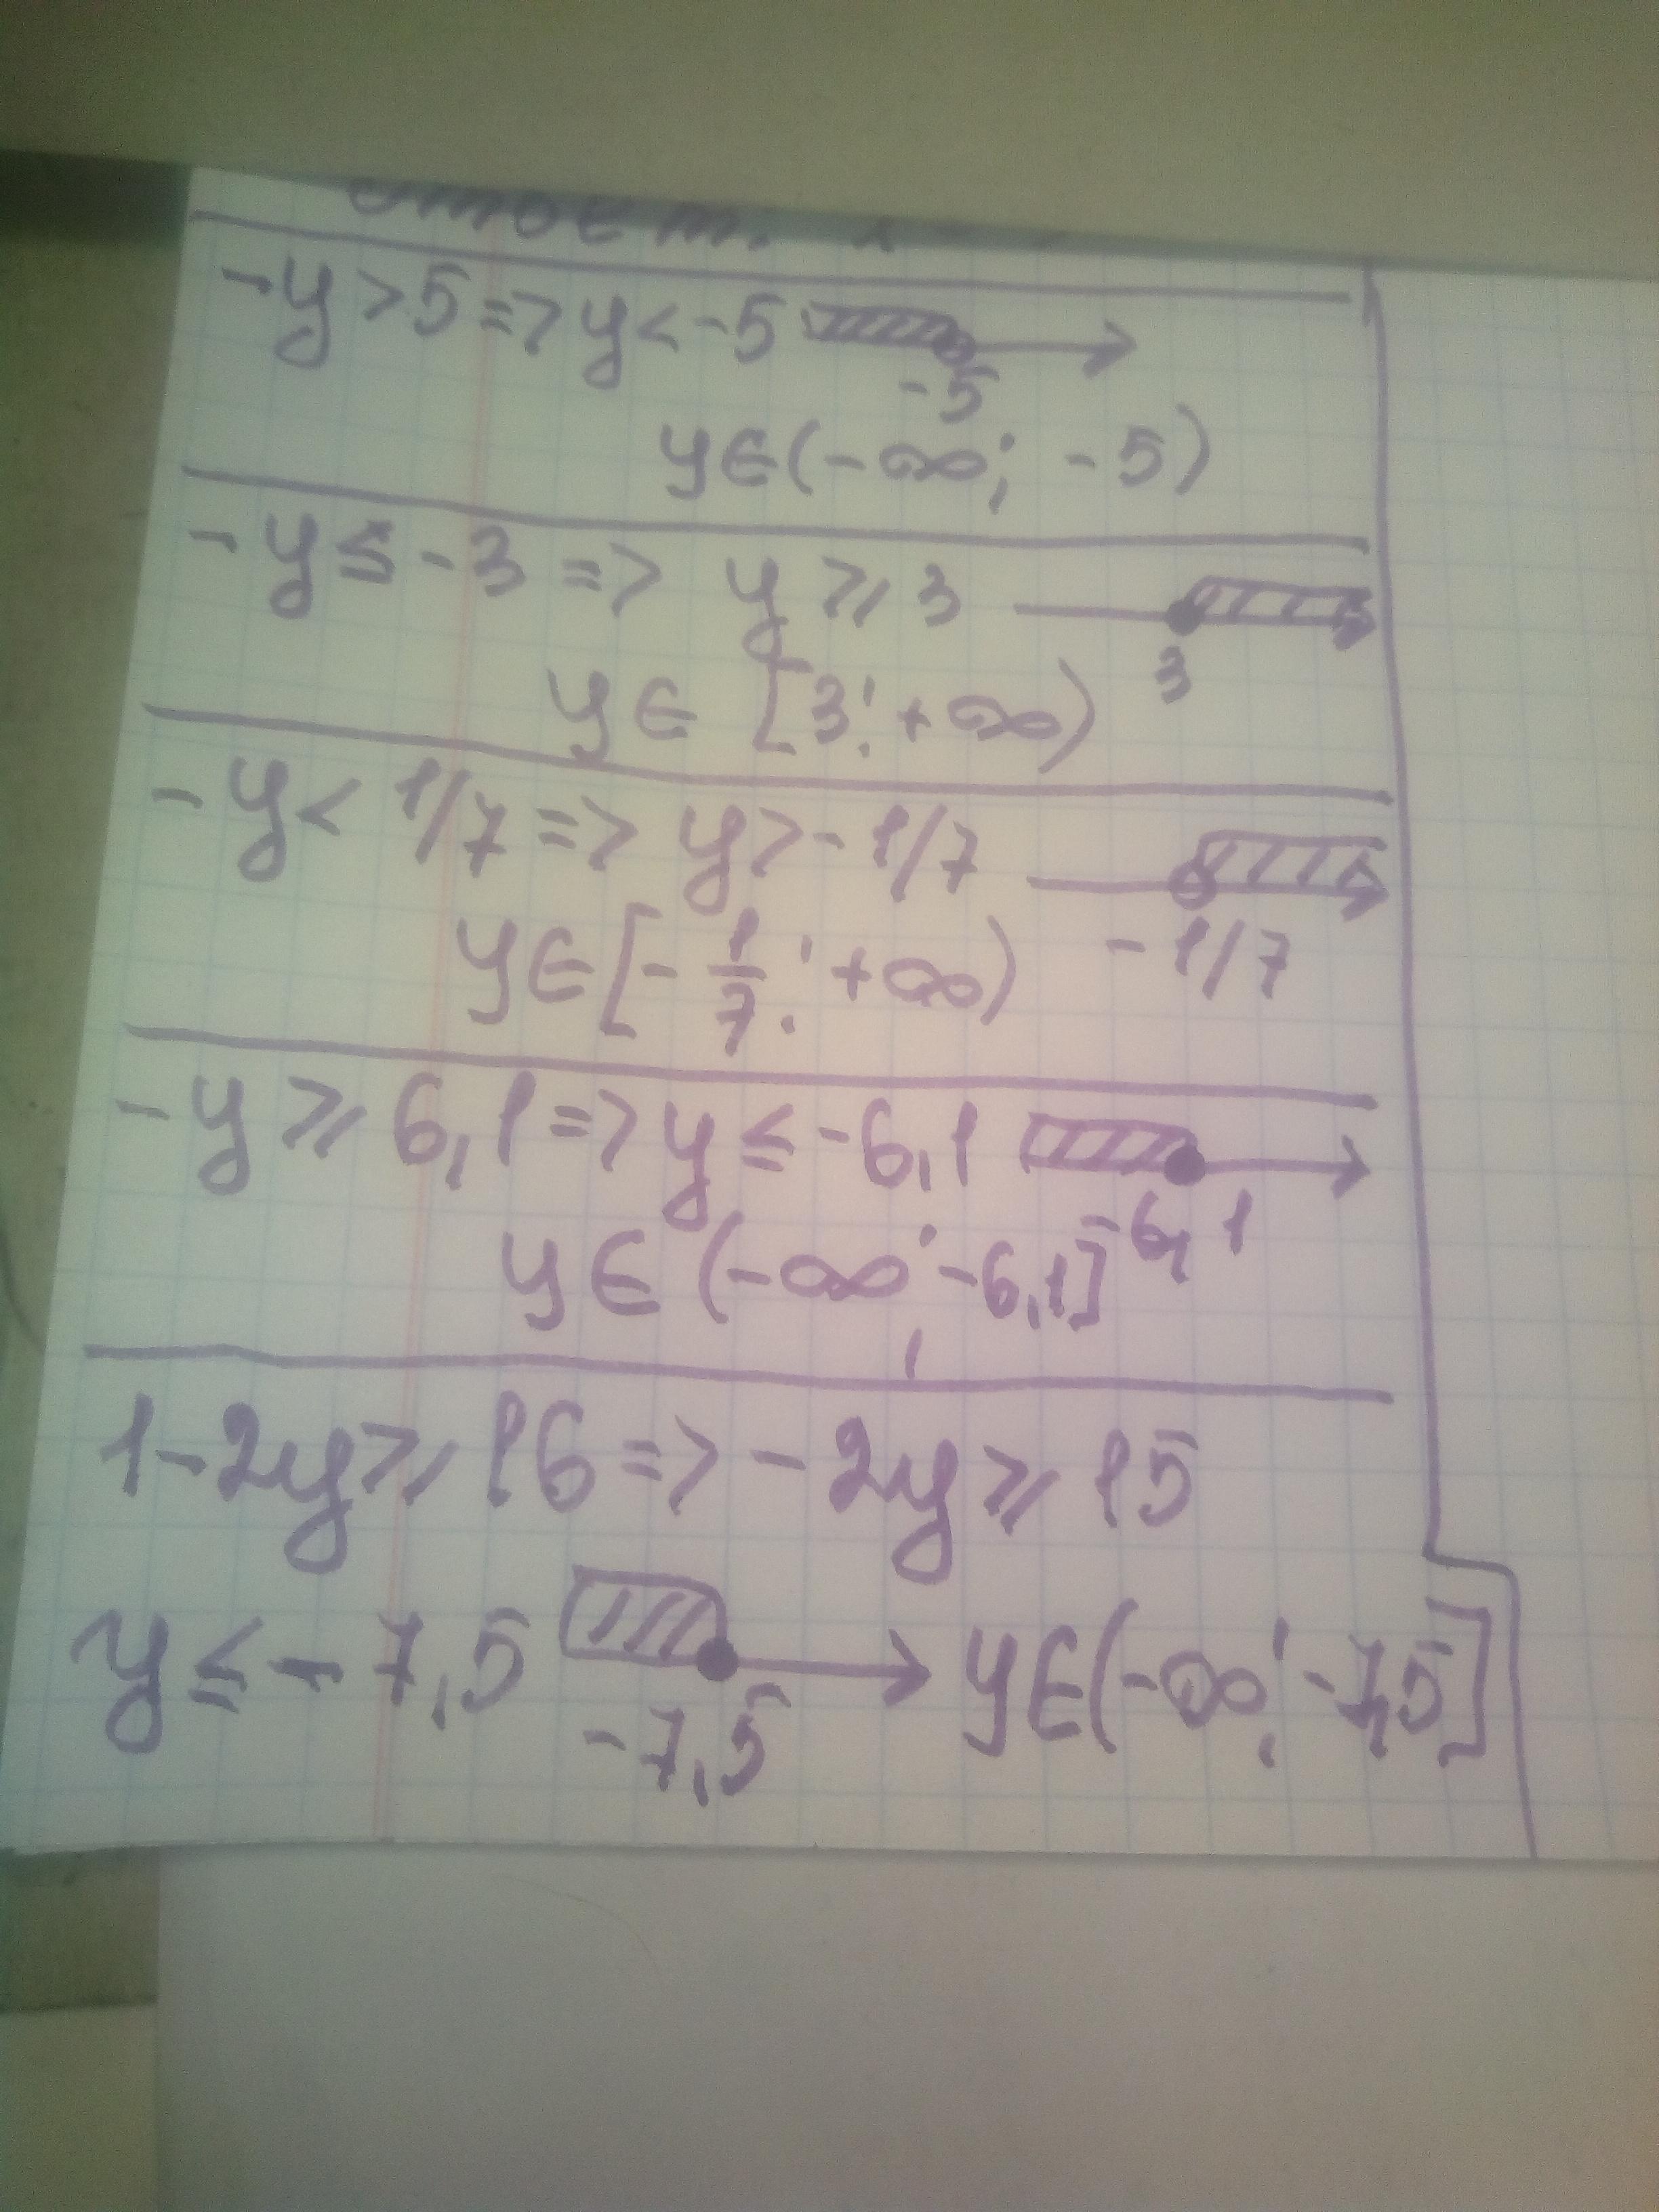 Ответ:
-y > 5 => y < -5
-5
y∈(-∞; -5)
-y ≤ -3 => y ⩾ 3
3
y∈ [3; +∞)
-y < 1/7 => y > -1/7
-1/7
y∈[-1/7; +∞)
-y ⩾ 6,1 => y ≤ -6,1
-6,1
y∈(-∞; -6,1]
1-2y ⩾ 16 => -2y ⩾ 15
y ≤ -7,5 y∈(-∞; -7,5]
-7,5